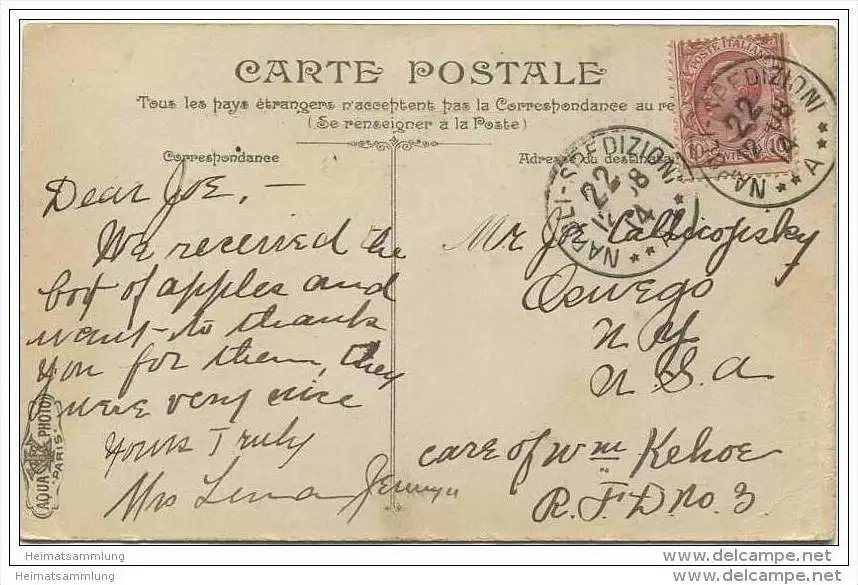 CARTE POSTALE
Tous les pays étrangers n'acceptent pas la Correspondance au re
(Se renseigner à la Poste)
Correspondance
Adresse du destinata
POSTE ITALIANE
NAPOLI-SPEDIZIONI
22
12
8
14
** A **
NAPOLI-SPEDIZIONI
22
12
8
** A **
Dear Joe, -
We received the
box of apples and
want to thank
you for them, they
were very nice
Yours Truly
Mrs Lena
Mr Joe
Oswego
N Y
U. S. A
care of Wm Kehoe
R. F. D No. 3
AQUA PHOTO
PARIS
Heimatsammlung
Heimatsammlung
www.delcampe.net
www.delcampe.net